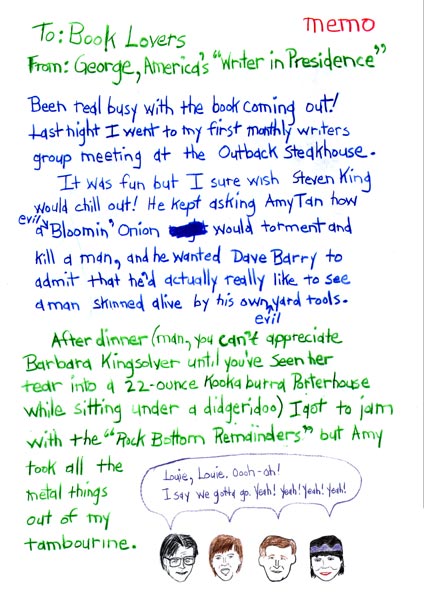 memo
To: Book Lovers
From: George, America's "Writer in Presidence"
Been real busy with the book coming out!
Last night I went to my first monthly writers
group meeting at the Outback Steakhouse.
It was fun but I sure wish Steven King
would chill out! He kept asking Amy Tan how
evil
a "Bloomin' Onion would torment and
kill a man, and he wanted Dave Barry to
admit that he'd actually really like to see
a man skinned alive by his own yard tools.
evil
After dinner (man, you can't appreciate
Barbara Kingsolver until you've seen her
tear into a 22-ounce Kookaburra Porterhouse
while sitting under a didgeridoo) I got to jam
with the "Rock Bottom Remainders" but Amy
took all the
metal things
out of my
tambourine.
Louie, Louie. Oooh-oh!
I say we gotta go. Yeah! Yeah! Yeah! Yeah!